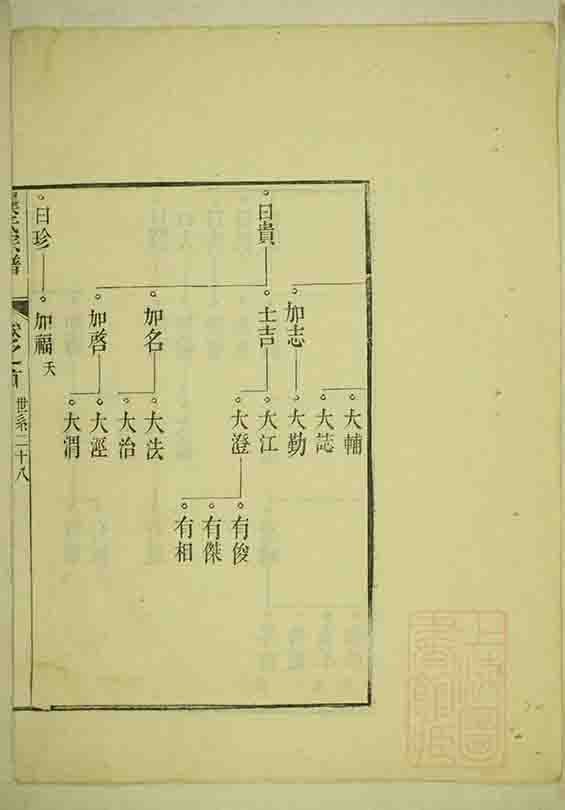 曰貴
曰珍
加志
士吉
加名
加啓
加福 夭
大輔
大誌
大勤
大江
大澄
大法
大治
大涇
大渭
有俊
有傑
有相
世系二十八